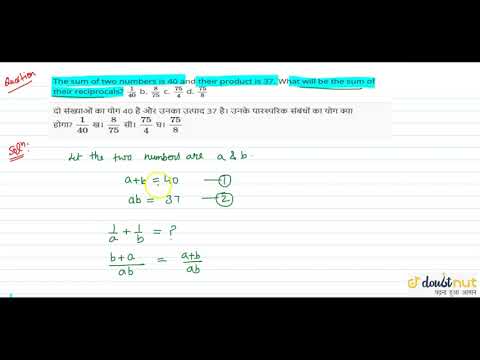 Question
The sum of two numbers is 40 and their product is 37. What will be the sum of
their reciprocals? 1/40 b. 8/75 c. 75/4 d. 75/8
दो संख्याओं का योग 40 है और उनका उत्पाद 37 है। उनके पारस्परिक संबंधों का योग क्या
होगा? 1/40 ख। 8/75 सी। 75/4 घ। 75/8
Soln:
Let the two numbers are a & b.
a+b = 40 — 1
ab = 37 — 2
1/a + 1/b = ?
b+a/ab = a+b/ab
doubtnut
पढ़ना हुआ आसान